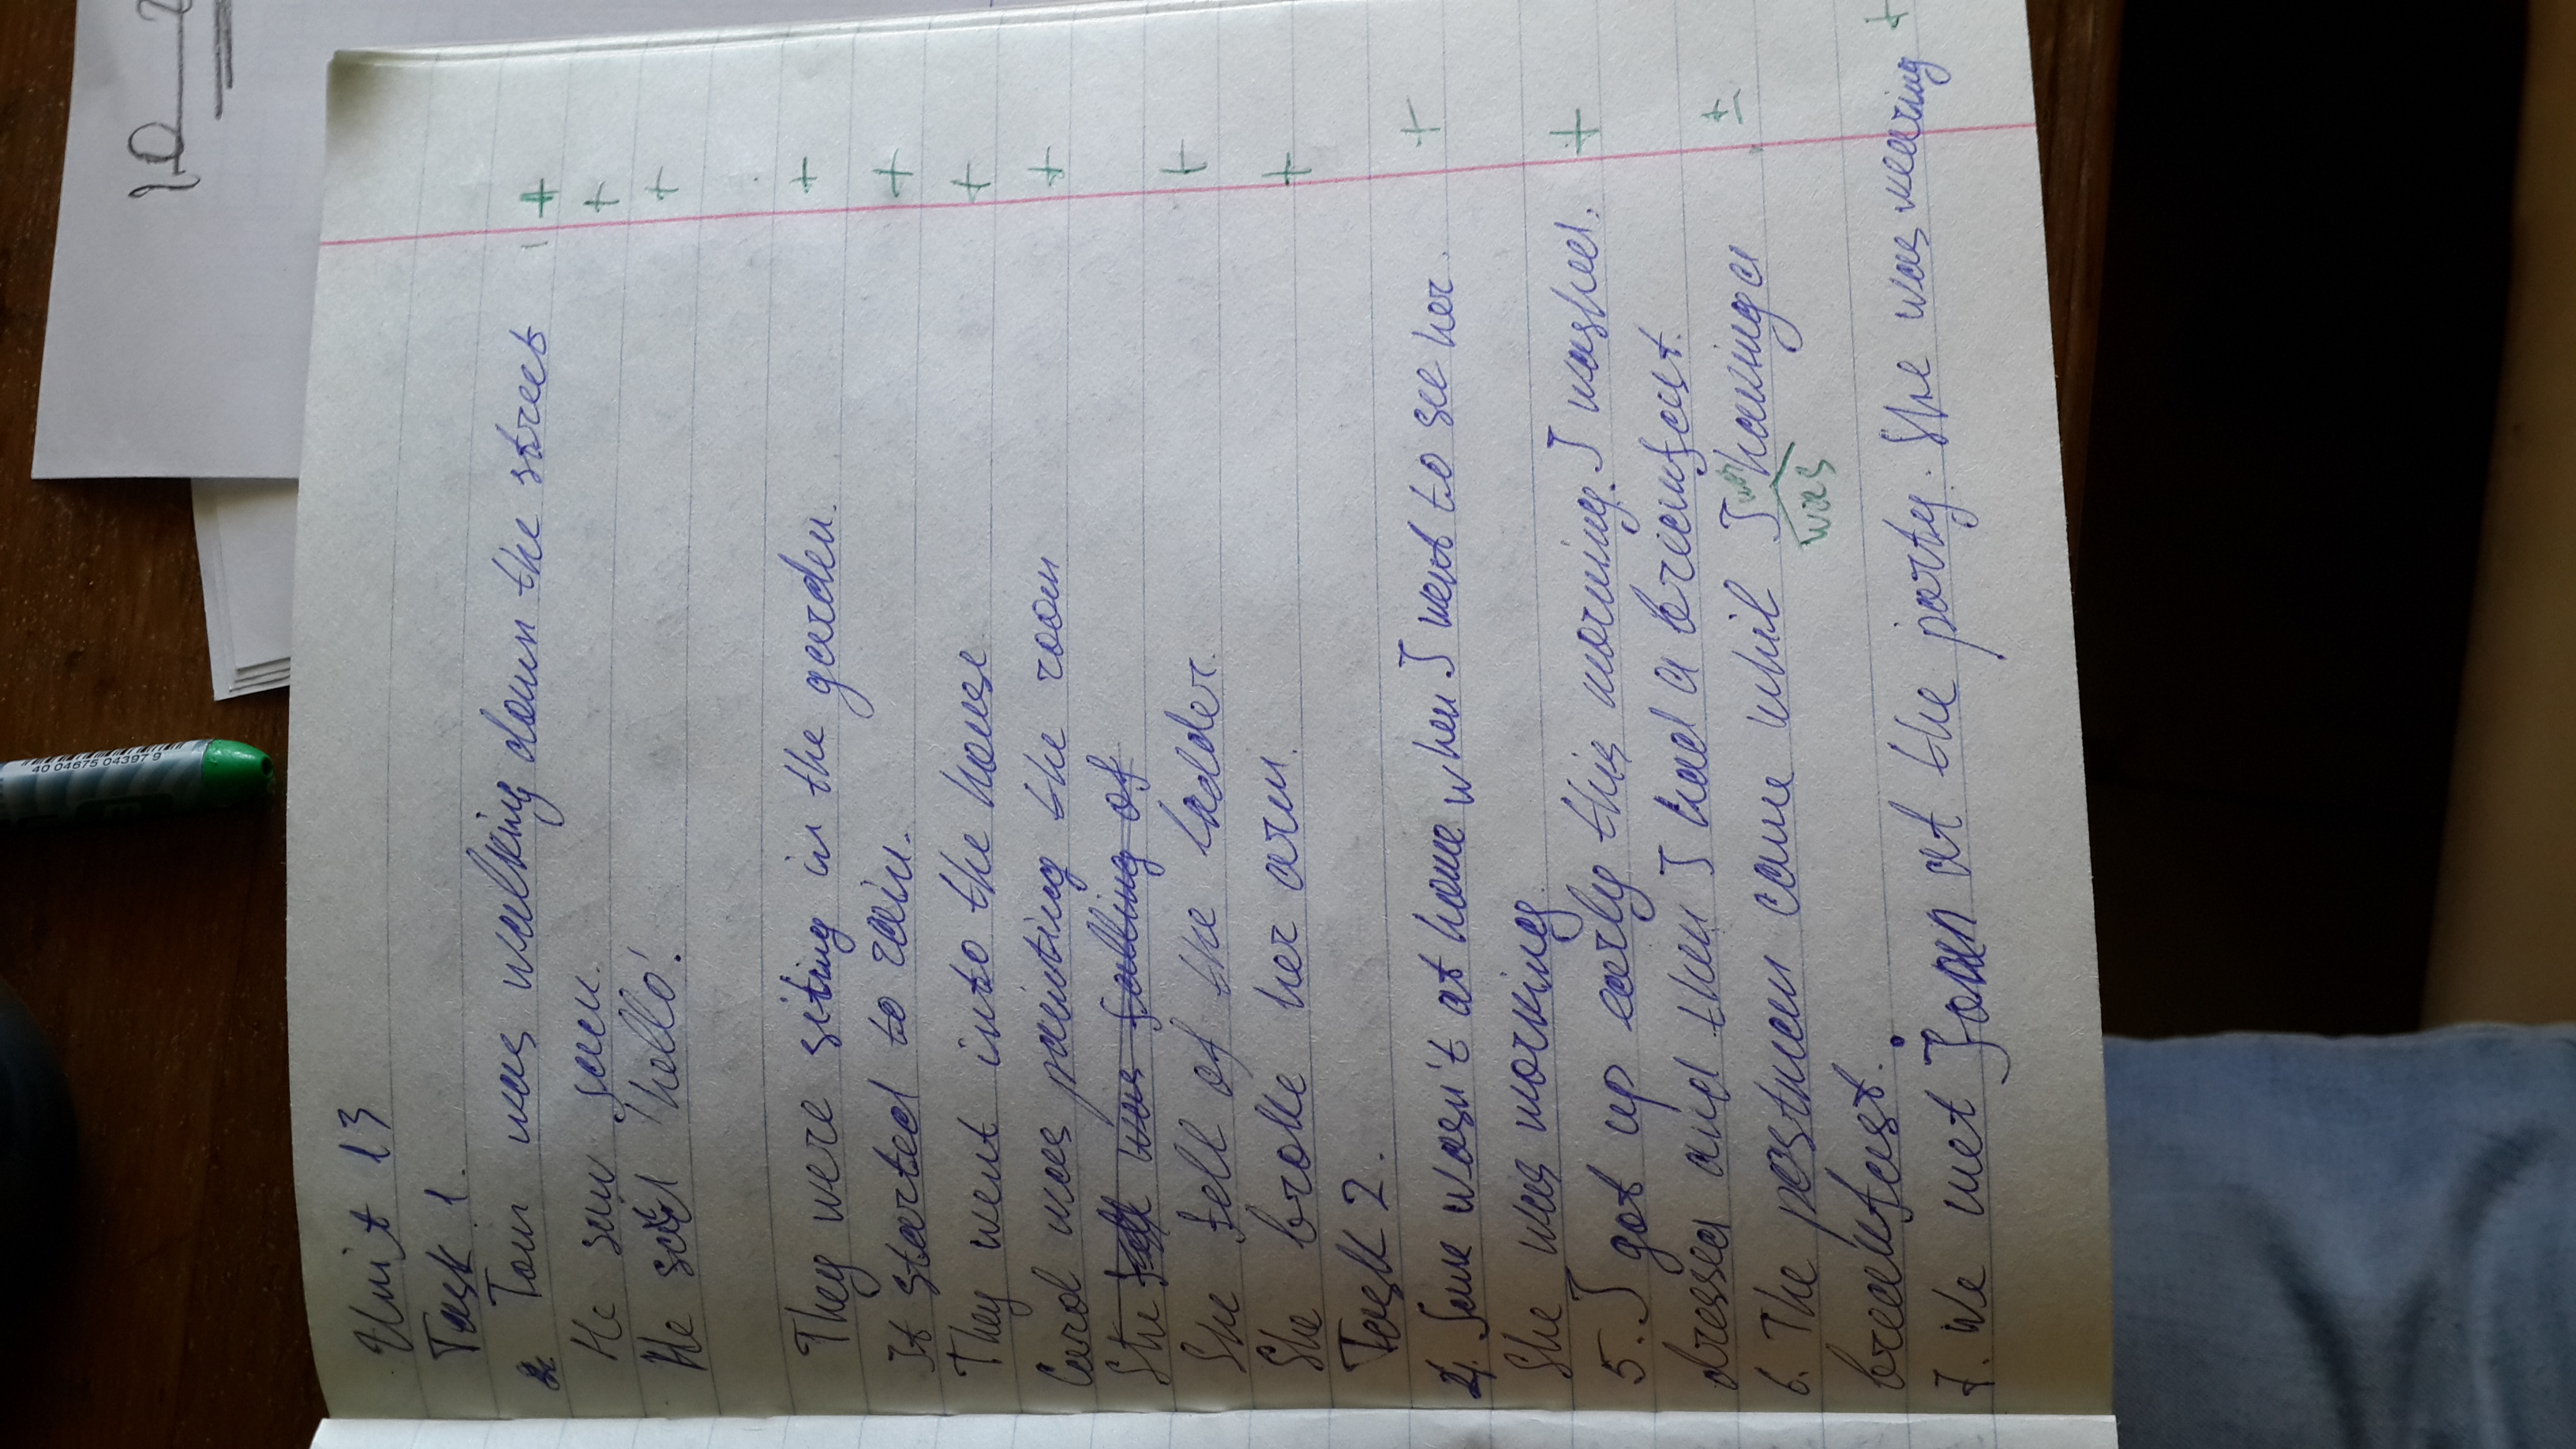 40 04675 04397 9
10 2
Unit 13
Task 1.
2. Tom was walking down the street +
He saw Jack. +
He said 'hello'. +
They were siting in the garden. +
It started to rain. +
They went into the house +
Carol was painting the room +
She fell was falling of
She fell of the ladder. +
She broke her arm. +
Task 2.
4. Jane wasn't at home when I went to see her. +
She was working.
5. I got up early this morning. I washed. +
dressed and then I had a breakfast.
6. The postman came whil I having a ±
was
breakfast.
7. We met Joan at the party. She was wearing +